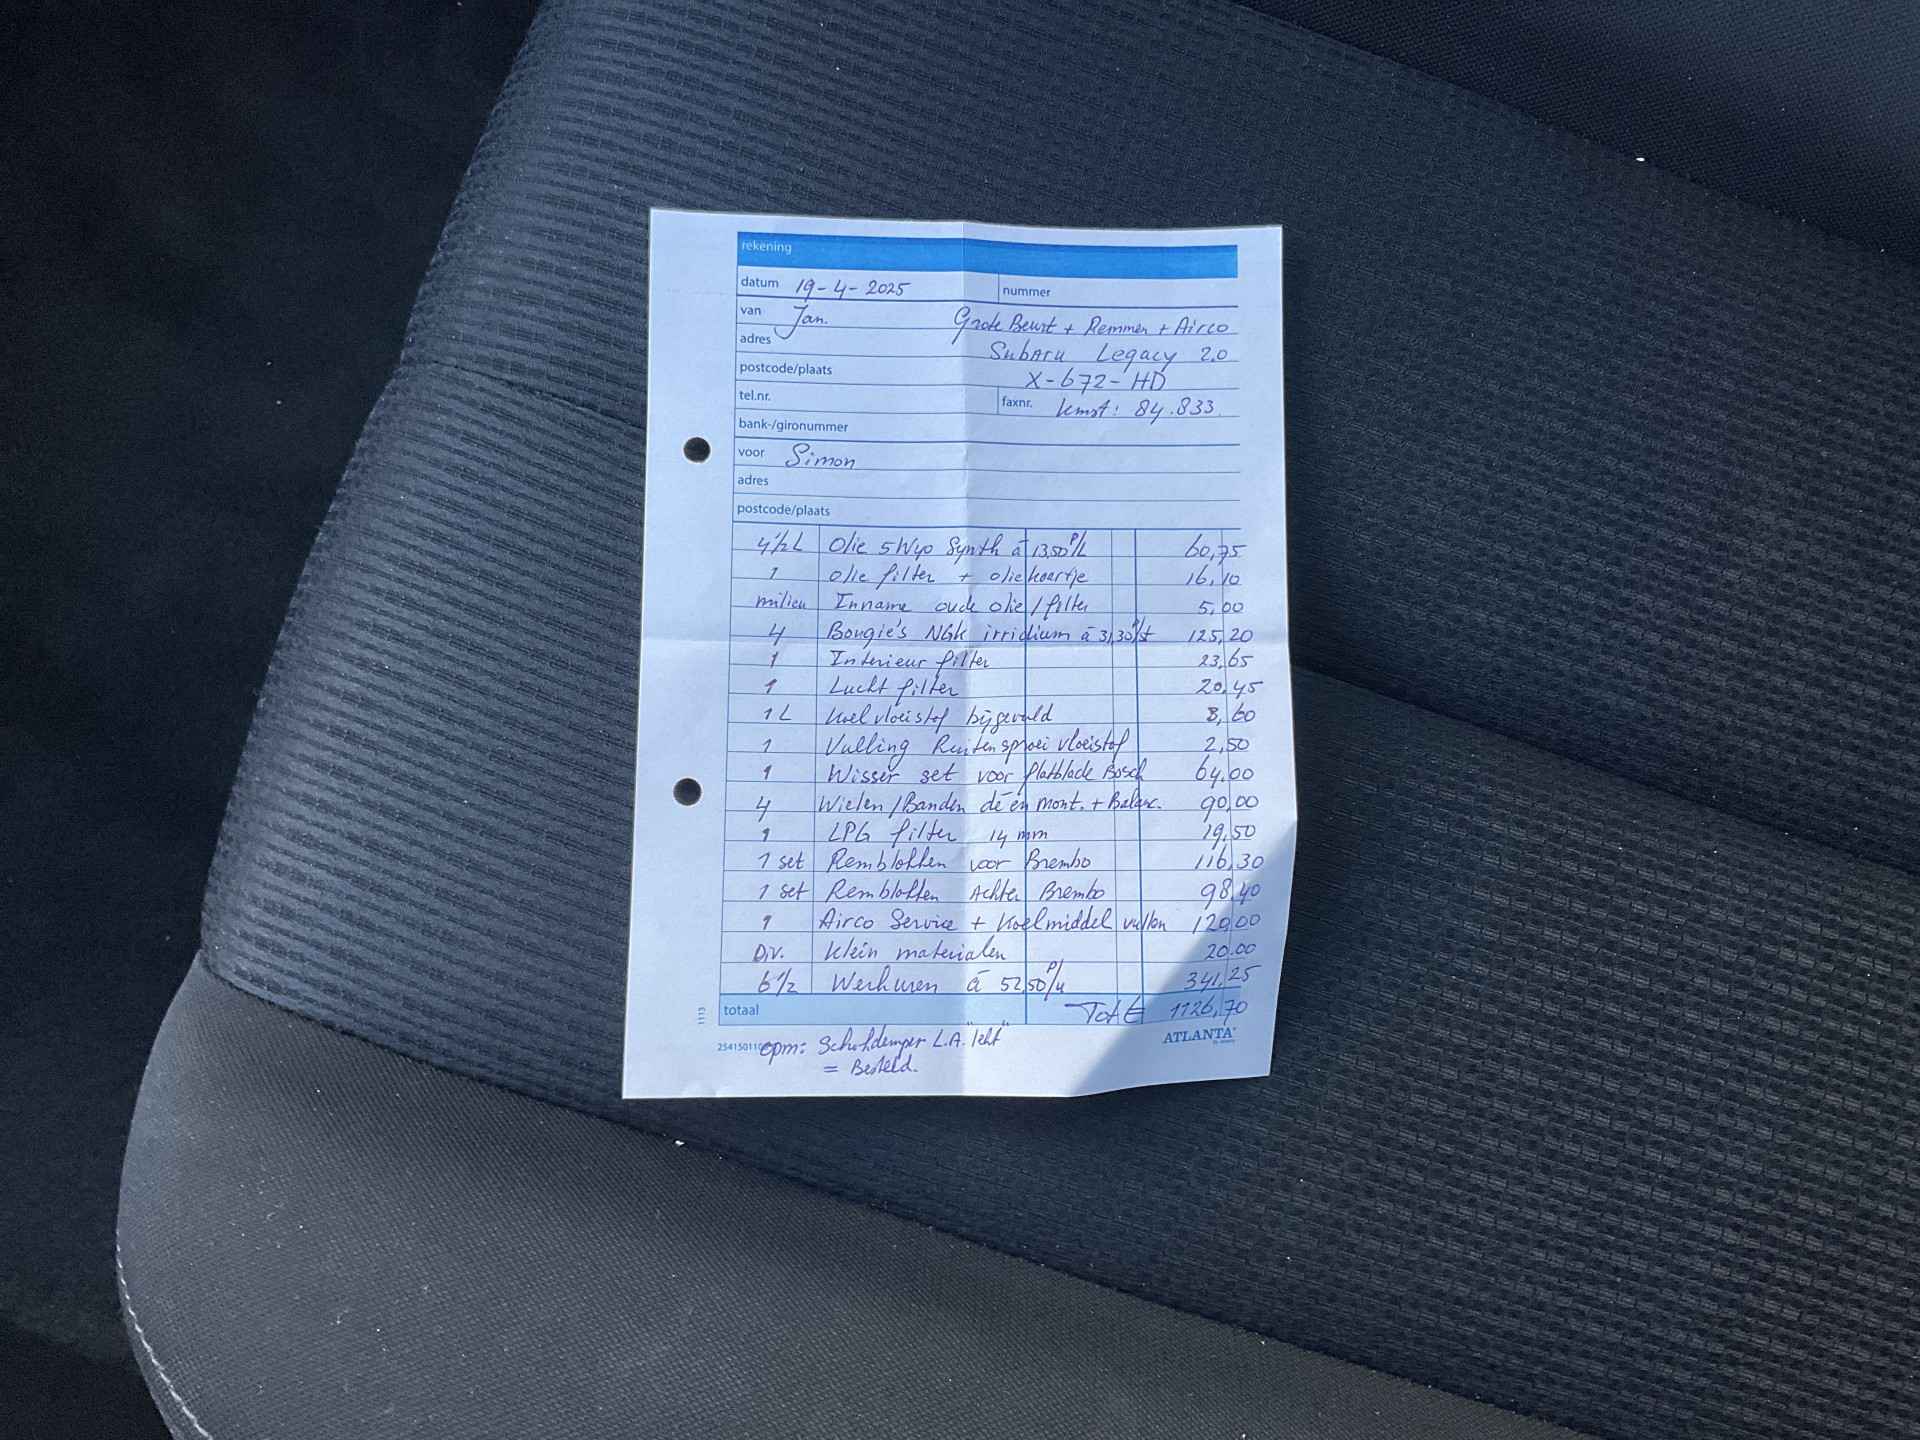 rekening
datum 19-4-2025 nummer
van Jan. Grote Beurt + Remmen + Airco
adres Subaru Legacy 2.0
postcode/plaats X-672-HD
tel.nr. faxnr. kmst: 84.833.
bank-/gironummer
voor Simon
adres
postcode/plaats
4½ L Olie 5W40 Synth à 13,50 P/L 60,75
1 olie filter + olie kaartje 16,10
milieu Inname oude olie/filter 5,00
4 Bougie's NGK irridium à 31,30 P/st 125,20
1 Interieur filter 23,65
1 Lucht filter 20,45
1 L Koelvloeistof bijgevuld 8,60
1 Vulling Ruitensproei vloeistof 2,50
1 Wisser set voor flatblade Bosch 64,00
4 Wielen/Banden de en mont. + Balanc. 90,00
1 LPG filter 14 mm 19,50
1 set Remblokken voor Brembo 116,30
1 set Remblokken Achter Brembo 98,40
1 Airco Service + Koelmiddel vullen 120,00
Div. Klein materialen 20.00
6½ Werkuren à 52,50 P/u 341,25
totaal Tot € 1126,70
1113
ATLANTA
opm: Schokdemper L.A. "lekt"
= Besteld.